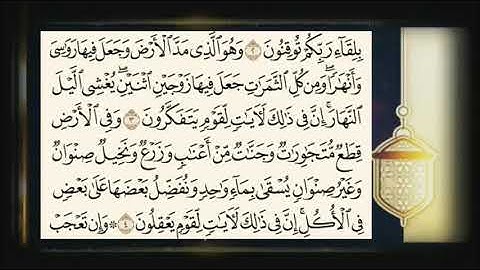 بِلِقَآءِ رَبِّكُمْ تُوقِنُونَ ٢ وَهُوَ ٱلَّذِى مَدَّ ٱلْأَرْضَ وَجَعَلَ فِيهَا رَوَٰسِىَ
وَأَنْهَٰرًا ۖ وَمِن كُلِّ ٱلثَّمَرَٰتِ جَعَلَ فِيهَا زَوْجَيْنِ ٱثْنَيْنِ ۖ يُغْشِى ٱلَّيْلَ
ٱلنَّهَارَ ۚ إِنَّ فِى ذَٰلِكَ لَءَايَٰتٍ لِّقَوْمٍ يَتَفَكَّرُونَ ٣ وَفِى ٱلْأَرْضِ
قِطَعٌ مُّتَجَٰوِرَٰتٌ وَجَنَّٰتٌ مِّنْ أَعْنَٰبٍ وَزَرْعٌ وَنَخِيلٌ صِنْوَانٌ
وَغَيْرُ صِنْوَانٍ يُسْقَىٰ بِمَآءٍ وَٰحِدٍ وَنُفَضِّلُ بَعْضَهَا عَلَىٰ بَعْضٍ
فِى ٱلْأُكُلِ ۚ إِنَّ فِى ذَٰلِكَ لَءَايَٰتٍ لِّقَوْمٍ يَعْقِلُونَ ٤ ۞ وَإِن تَعْجَبْ